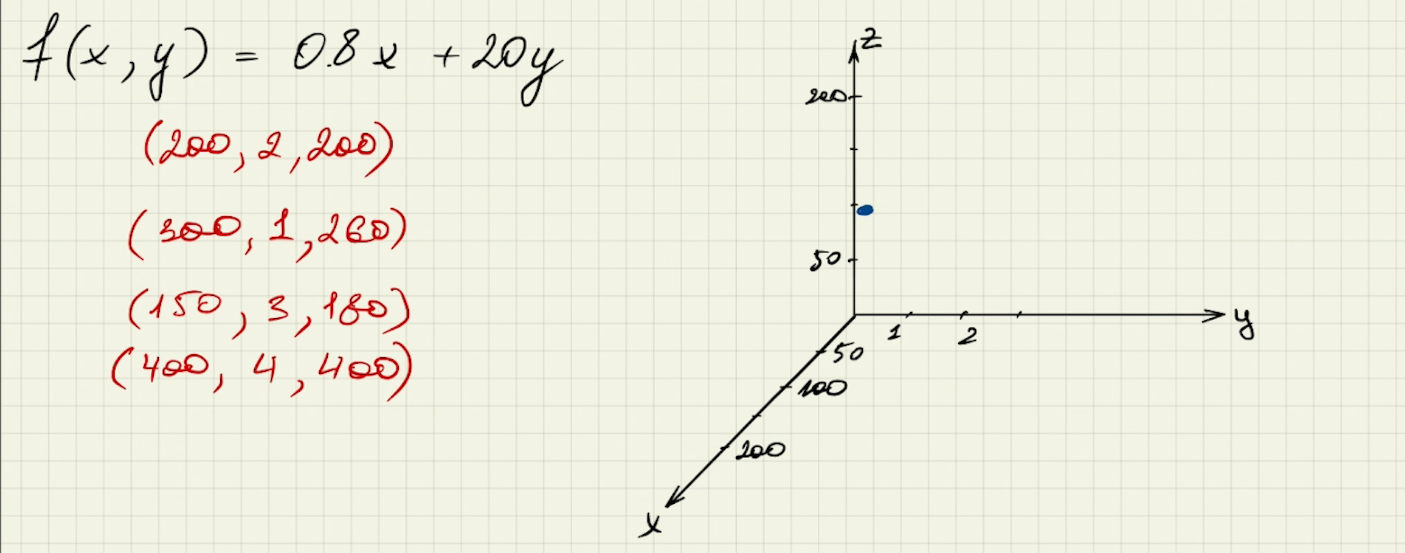 f(x, y) = 0.8x + 20y
(200, 2, 200)
(300, 1, 260)
(150, 3, 180)
(400, 4, 400)
z
200
50
1
2
y
50
100
200
x